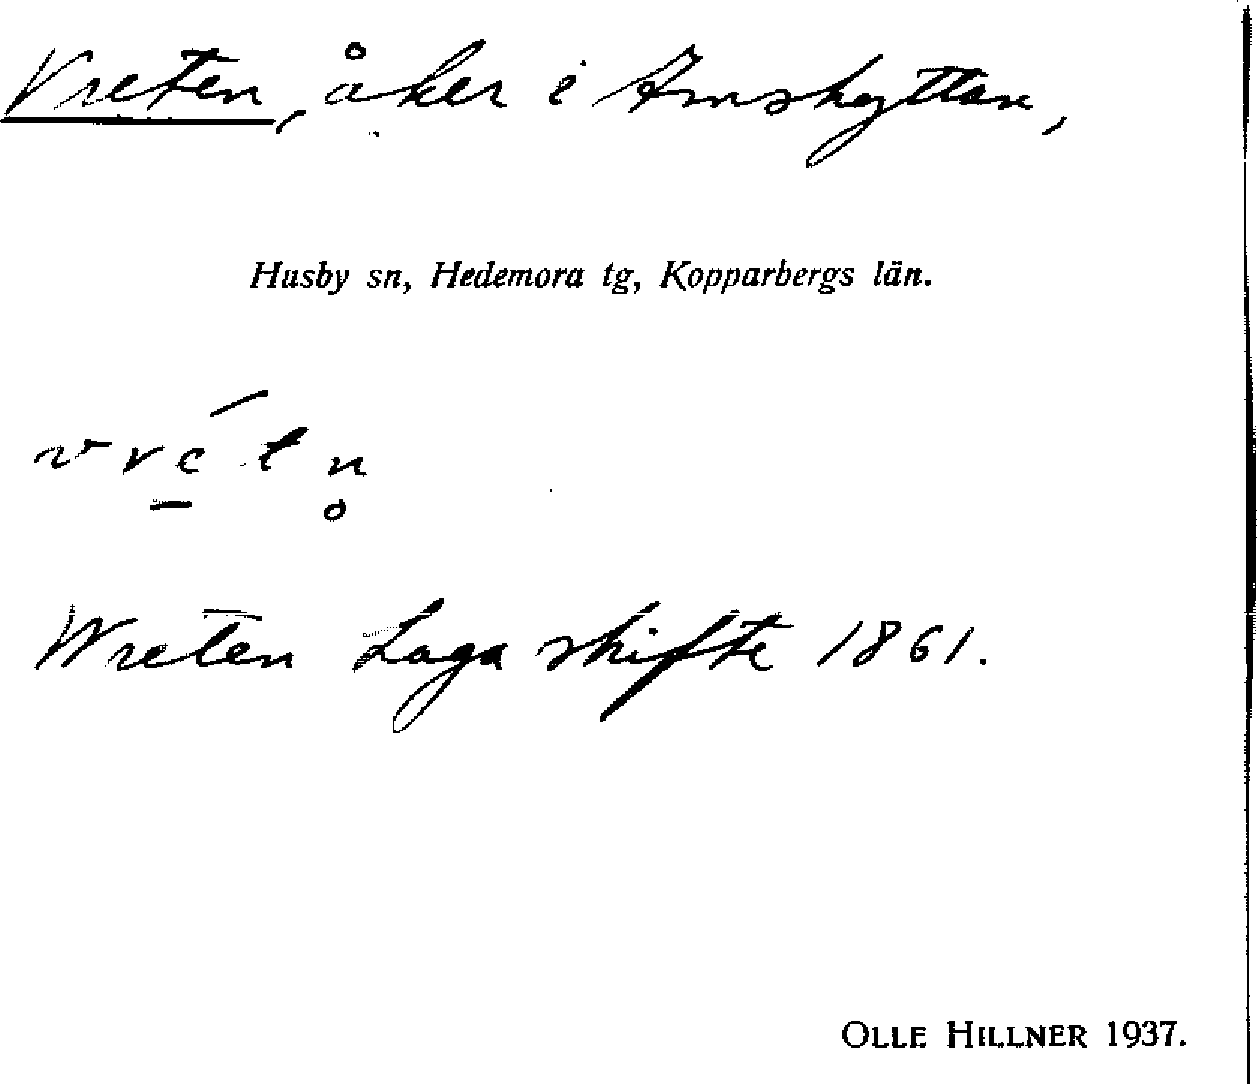 Vreten, åker i Amshyttan,
Husby sn, Hedemora tg, Kopparbergs län.
vré̲tn̥
Wreten Laga skifte 1861.
OLLE HILLNER 1937.